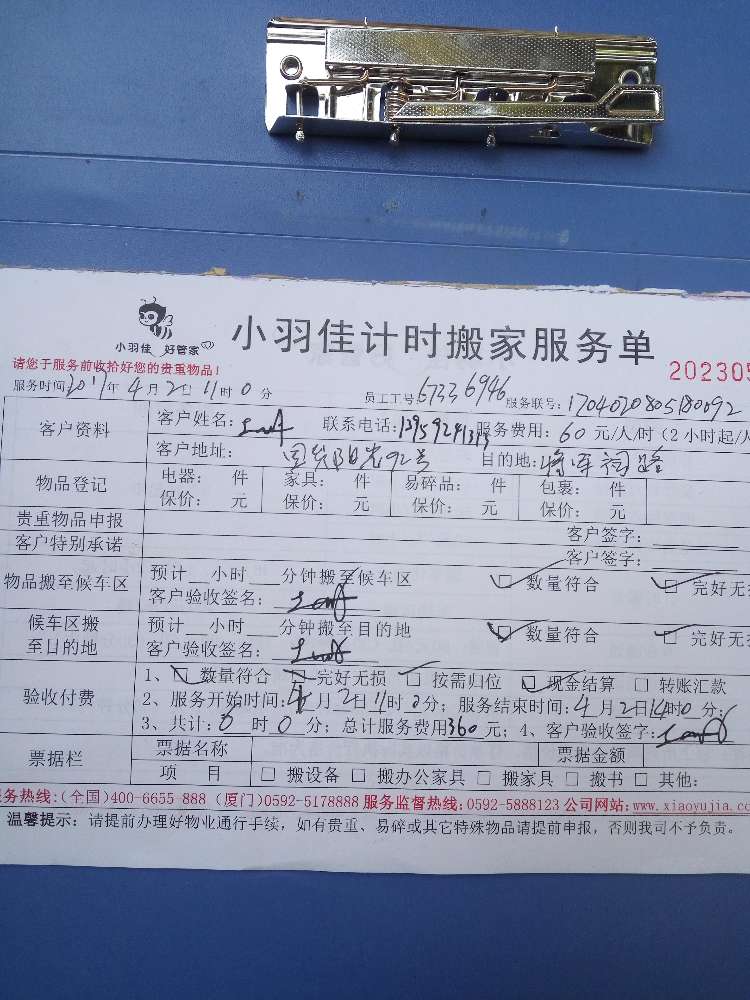 小羽佳 好管家
小羽佳计时搬家服务单
请您于服务前收拾好您的贵重物品!
202305
服务时间2017年4月2日11时0分 员工工号67336946 服务联号:1704020805180092
客户资料 客户姓名: 联系电话:13959241313 服务费用:60元/人/时(2小时起/人
客户地址:国贸阳光92号 目的地:将军祠路
物品登记 电器: 件 家具: 件 易碎品: 件 包裹: 件
保价: 元 保价: 元 保价: 元 保价: 元
贵重物品申报 客户签字:
客户特别承诺 客户签字:
物品搬至候车区 预计__小时___分钟搬至候车区 数量符合 完好无损
客户验收签名:
候车区搬至目的地 预计__小时___分钟搬至目的地 数量符合 完好无损
客户验收签名:
验收付费 1、数量符合 完好无损 按需归位 现金结算 转账汇款
2、服务开始时间:4月2日11时0分; 服务结束时间:4月2日14时0分;
3、共计:6时0分; 总计服务费用360元; 4、客户验收签字:
票据栏 票据名称 票据金额
项 目 搬设备 搬办公家具 搬家具 搬书 其他:
务热线:(全国)400-6655-888 (厦门)0592-5178888 服务监督热线:0592-5888123 公司网站:www.xiaoyujia.co
温馨提示: 请提前办理好物业通行手续,如有贵重、易碎或其它特殊物品请提前申报,否则我司不予负责。